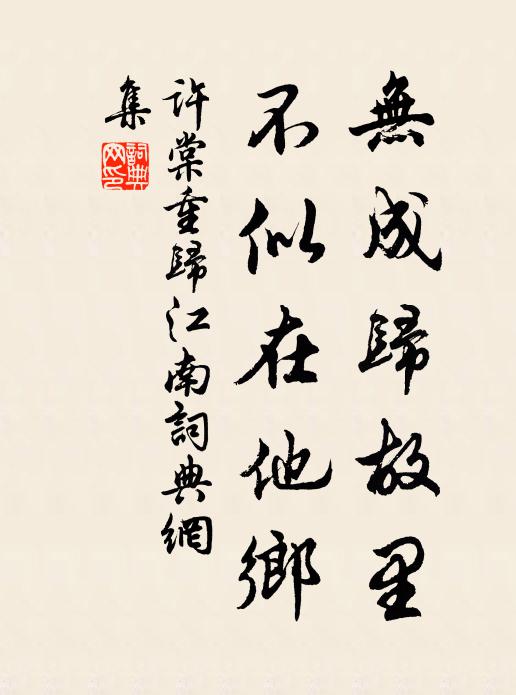 無成歸故里
不似在他鄉
許棠重歸江南詞典網
集
詞典
网印